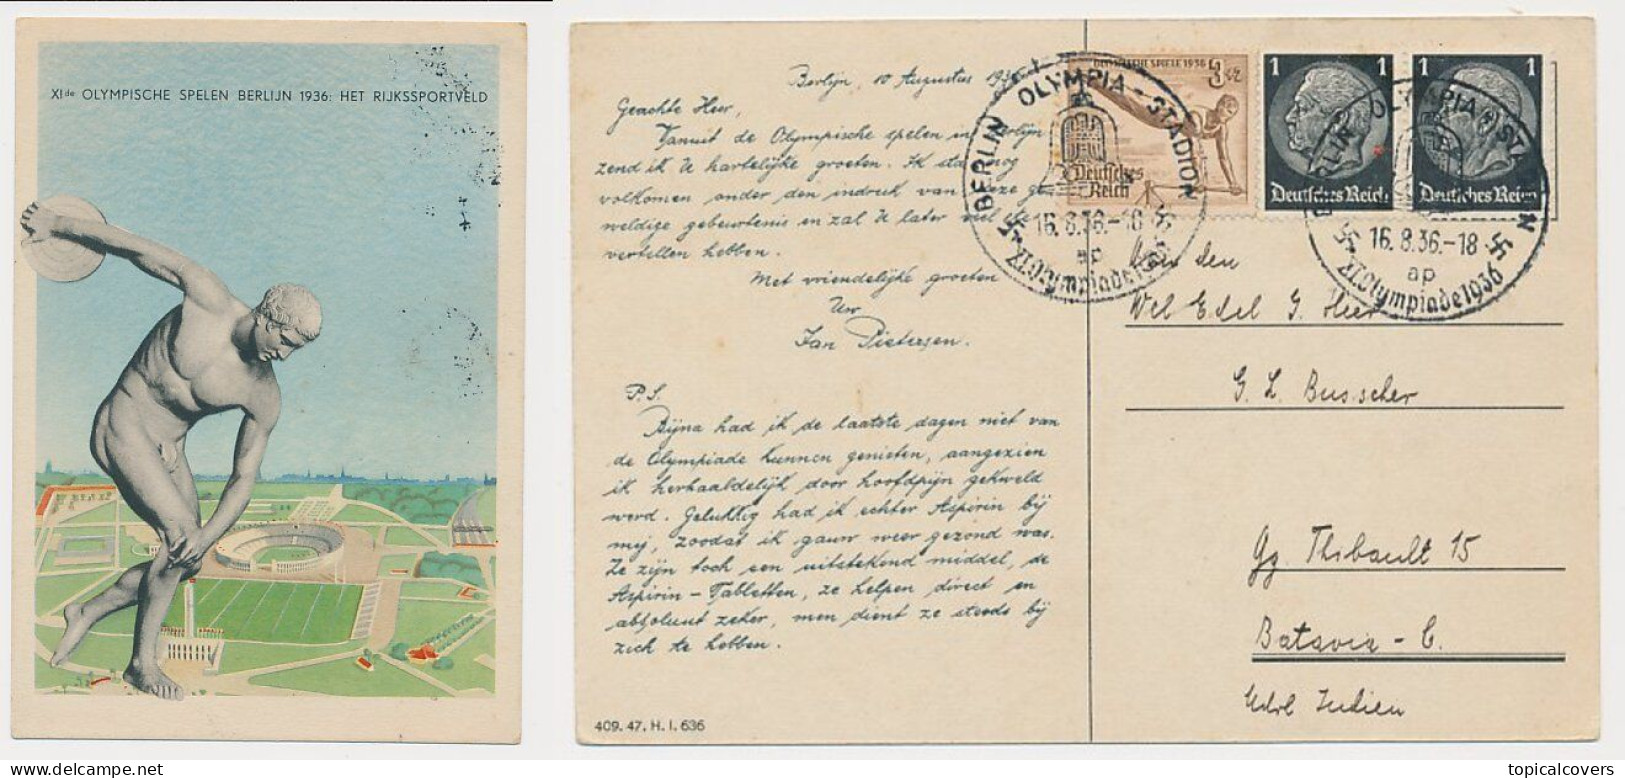 XIde OLYMPISCHE SPELEN BERLIJN 1936: HET RIJKSSPORTVELD
Berlijn, 10 Augustus 1936
Geachte Heer,
Vanuit de Olympische spelen in Berlijn
zend ik U hartelijke groeten. Ik sta nog
volkomen onder den indruk van deze ge-
weldige gebeurtenis en zal U later veel
vertellen hebben.
Met vriendelijke groeten
Uw
Jan Pietersen.
P.S.
Bijna had ik de laatste dagen niet van
de Olympiade kunnen genieten, aangezien
ik herhaaldelijk door hoofdpijn gekweld
werd. Gelukkig had ik echter Aspirin bij
mij, zoodat ik gauw weer gezond was.
Ze zijn toch een uitstekend middel, de
Aspirin-Tabletten, ze helpen direct en
absoluut zeker, men dient ze steeds bij
zich te hebben.
409. 47. H. I. 636
OLYMPISCHE SPIELE 1936 3
Deutsches
Reich
1 1
Deutsches Reich
1 1
Deutsches Reich
BERLIN OLYMPIA-STADION
16.8.36.-18
ap
XI.Olympiade 1936
BERLIN OLYMPIA-STADION
16.8.36.-18
ap
XI.Olympiade 1936
Aan den
Wel Edel G. Heer
G. L. Busscher
Gg. Thibault 15
Batavia - C.
Ned. Indien
topicalcovers